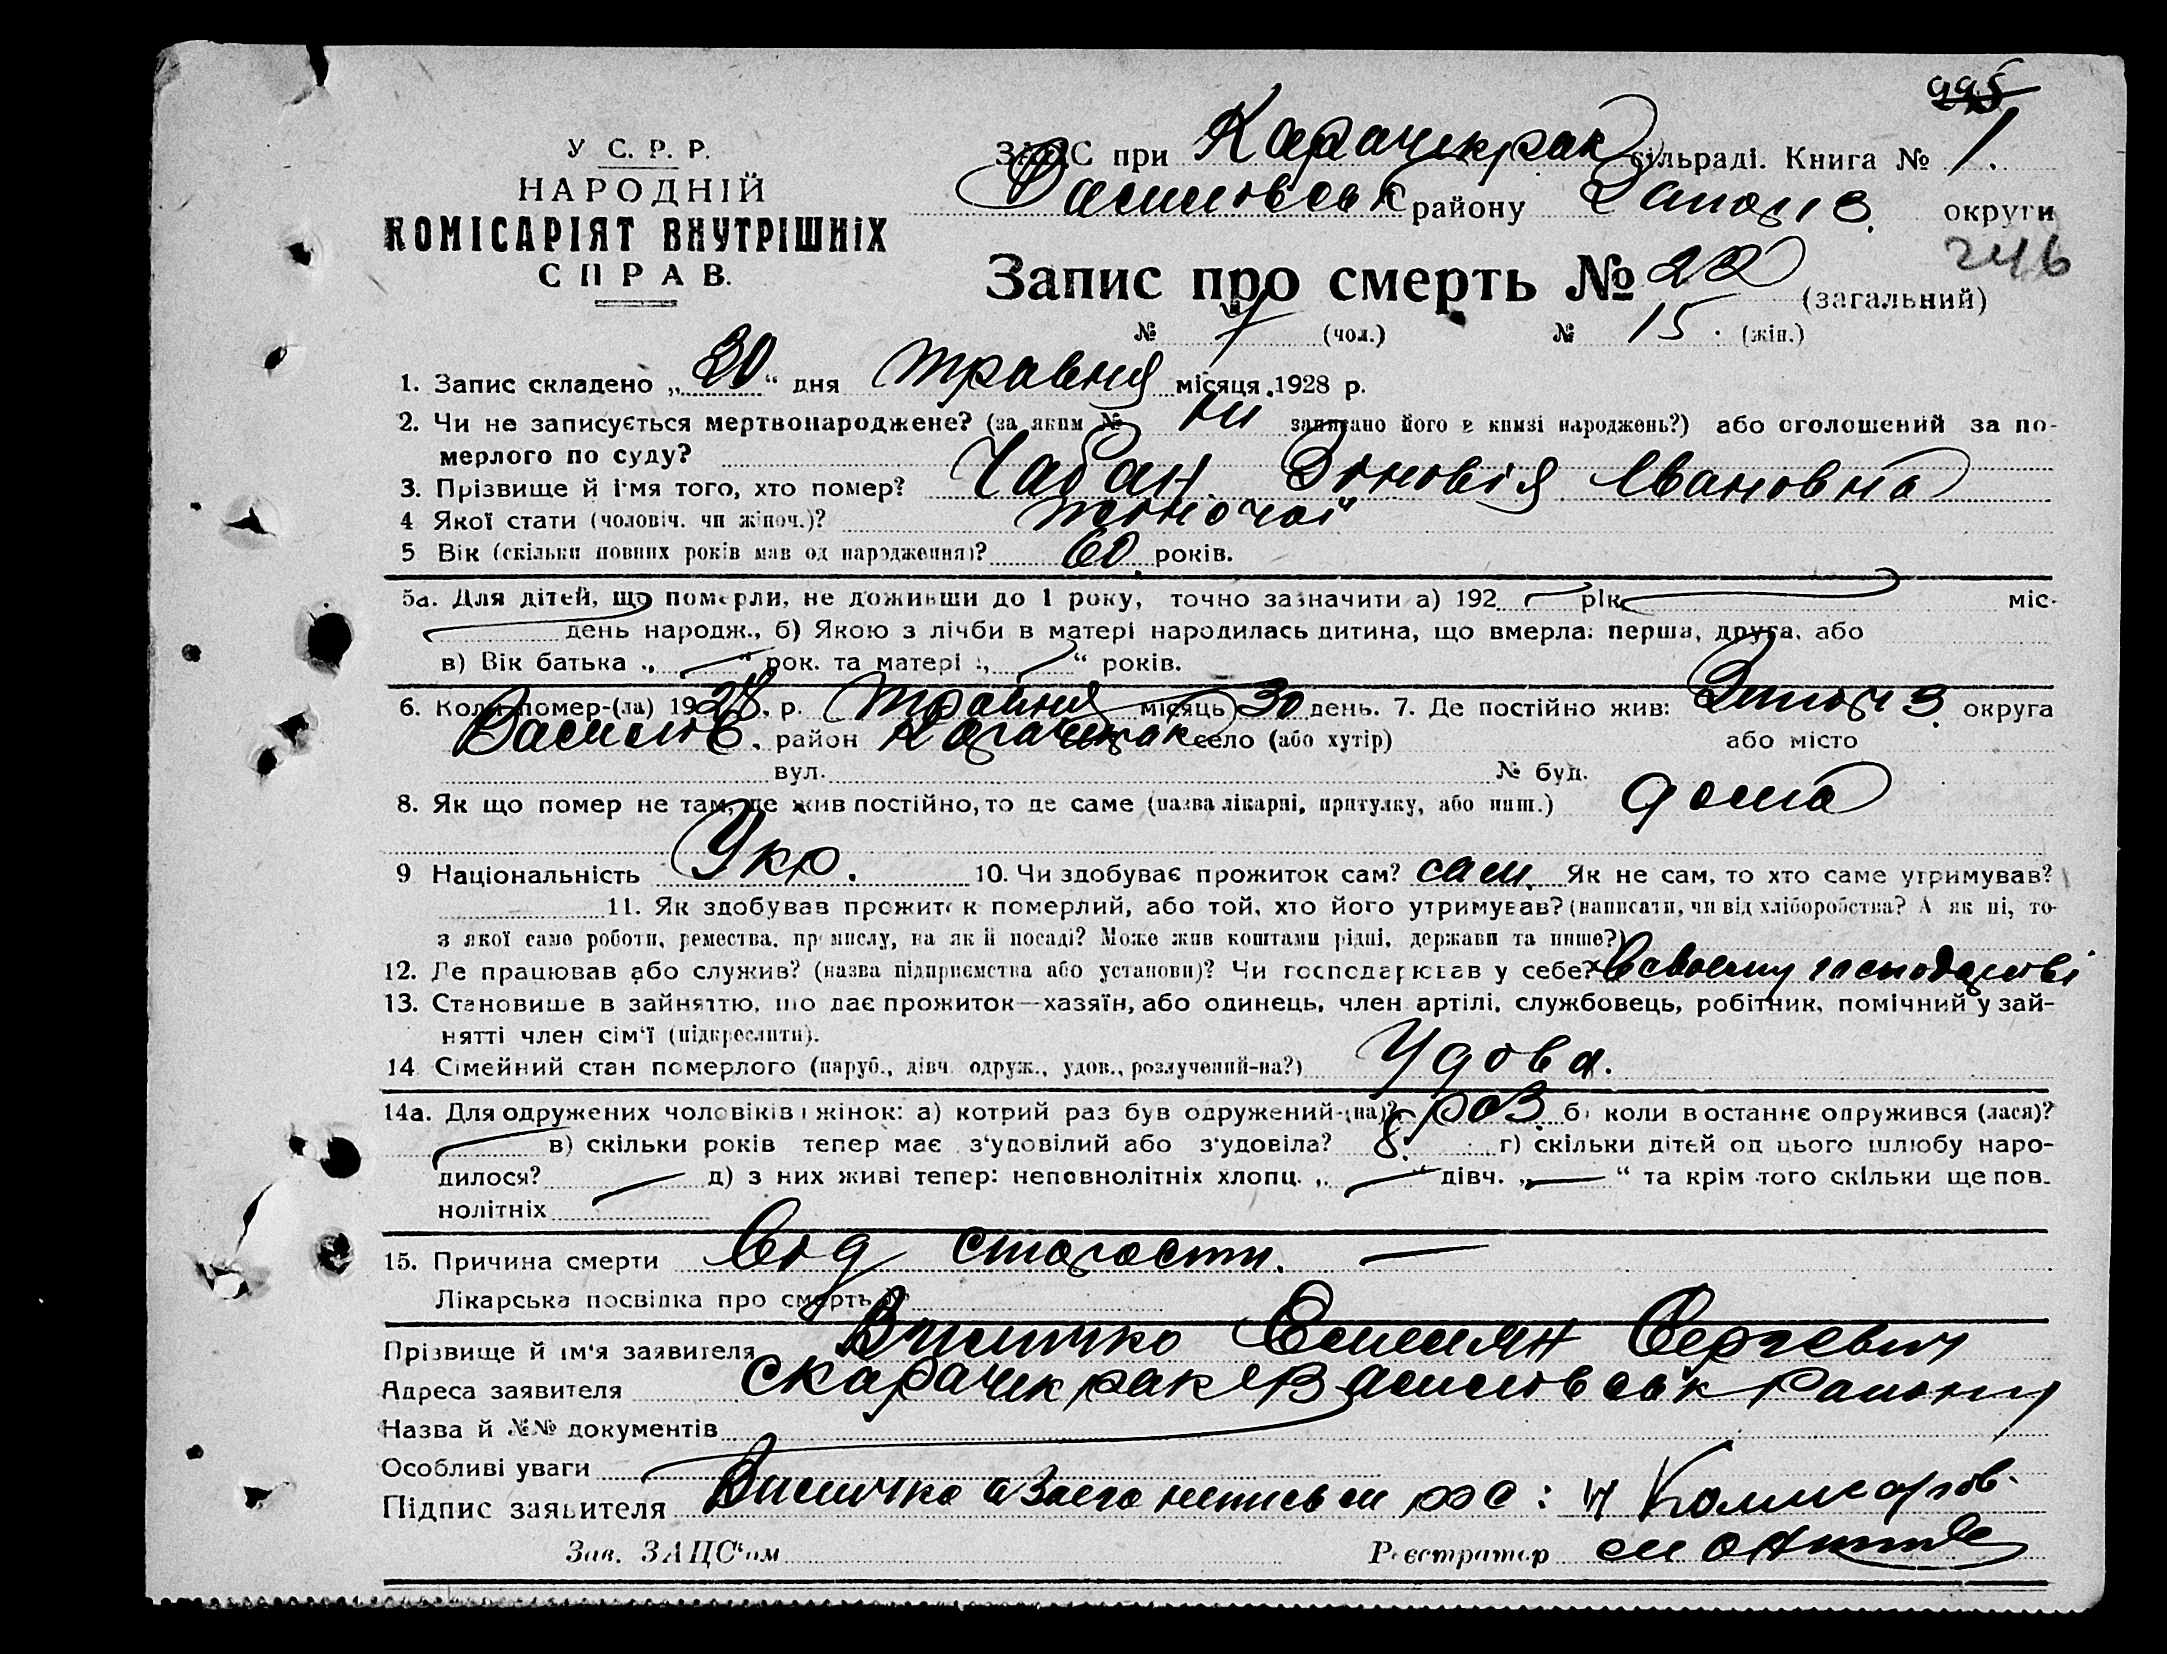 995
У С. Р. Р.
НАРОДНІЙ
КОМІСАРІЯТ ВНУТРІШНІХ
СПРАВ.
ЗАГС при Карачекрак сільраді. Книга № 1.
Василівськ району Запоріз. округи
246
Запис про смерть № 22 (загальний)
№ 7 (чол.) № 15. (жін.)
1. Запис складено „30“ дня травня місяця 1928 р.
2. Чи не записується мертвонароджене? (за яким № ни записано його в книзі народжень?) або оголошений за по-
мерлого по суду?
3. Прізвище й ім'я того, хто помер? Чабан Зіновія Івановна
4 Якої статі (чоловіч. чи жіноч.)? жіночої
5 Вік (скільки повних років мав од народження)? 60 років.
5а. Для дітей, що померли, не доживши до 1 року, точно зазначити а) 192 рік міс-
день народж., б) Якою з лічби в матері народилась дитина, що вмерла: перша, друга, або
в) Вік батька „ “ рок. та матері „ “ років.
6. Коли помер-(ла) 1928, р. травня місяць 30 день. 7. Де постійно жив: Запоріз округа
Василів. район Карачекрак село (або хутір) або місто
вул. № буд.
8. Як що помер не там, де жив постійно, то де саме (назва лікарні, притулку, або инш.) дома
9 Національність Укр. 10. Чи здобував прожиток сам? сам. Як не сам, то хто саме утримував?
11. Як здобував прожиток померлий, або той, хто його утримував? (написати, чи від хліборобства? А як ні, то-
з якої саме роботи, ремества, промислу, на якій посаді? Може жив коштами рідні, держави та инше?)
12. Де працював або служив? (назва підприємства або установи)? Чи господарював у себе? В своему господарстві
13. Становище в зайняттю, що дає прожиток—хазяїн, або одинець, член артілі, службовець, робітник, помічний у зай-
нятті член сім'ї (підкреслити).
14 Сімейний стан померлого (паруб., дівч. одруж., удов., розлучений-на?) Удова.
14а. Для одружених чоловіків і жінок: а) котрий раз був одружений-(на)? раз б) коли востаннє одружився (лася)?
в) скільки років тепер має з'удовілий або з'удовіла? 8. г) скільки дітей од цього шлюбу наро-
дилося? д) з них живі тепер: неповнолітніх хлопц. „ “ дівч. „ “ та крім того скільки ще пов-
нолітніх
15. Причина смерти Від старости. —
Лікарська посвідка про смерть №
Прізвище й ім'я заявителя Емелиян Сергеевич
Адреса заявителя с карачекраке Василовськ Району
Назва й №№ документів
Особливі уваги
Підпис заявителя
Зав. ЗАЦС'ом Реєстратор